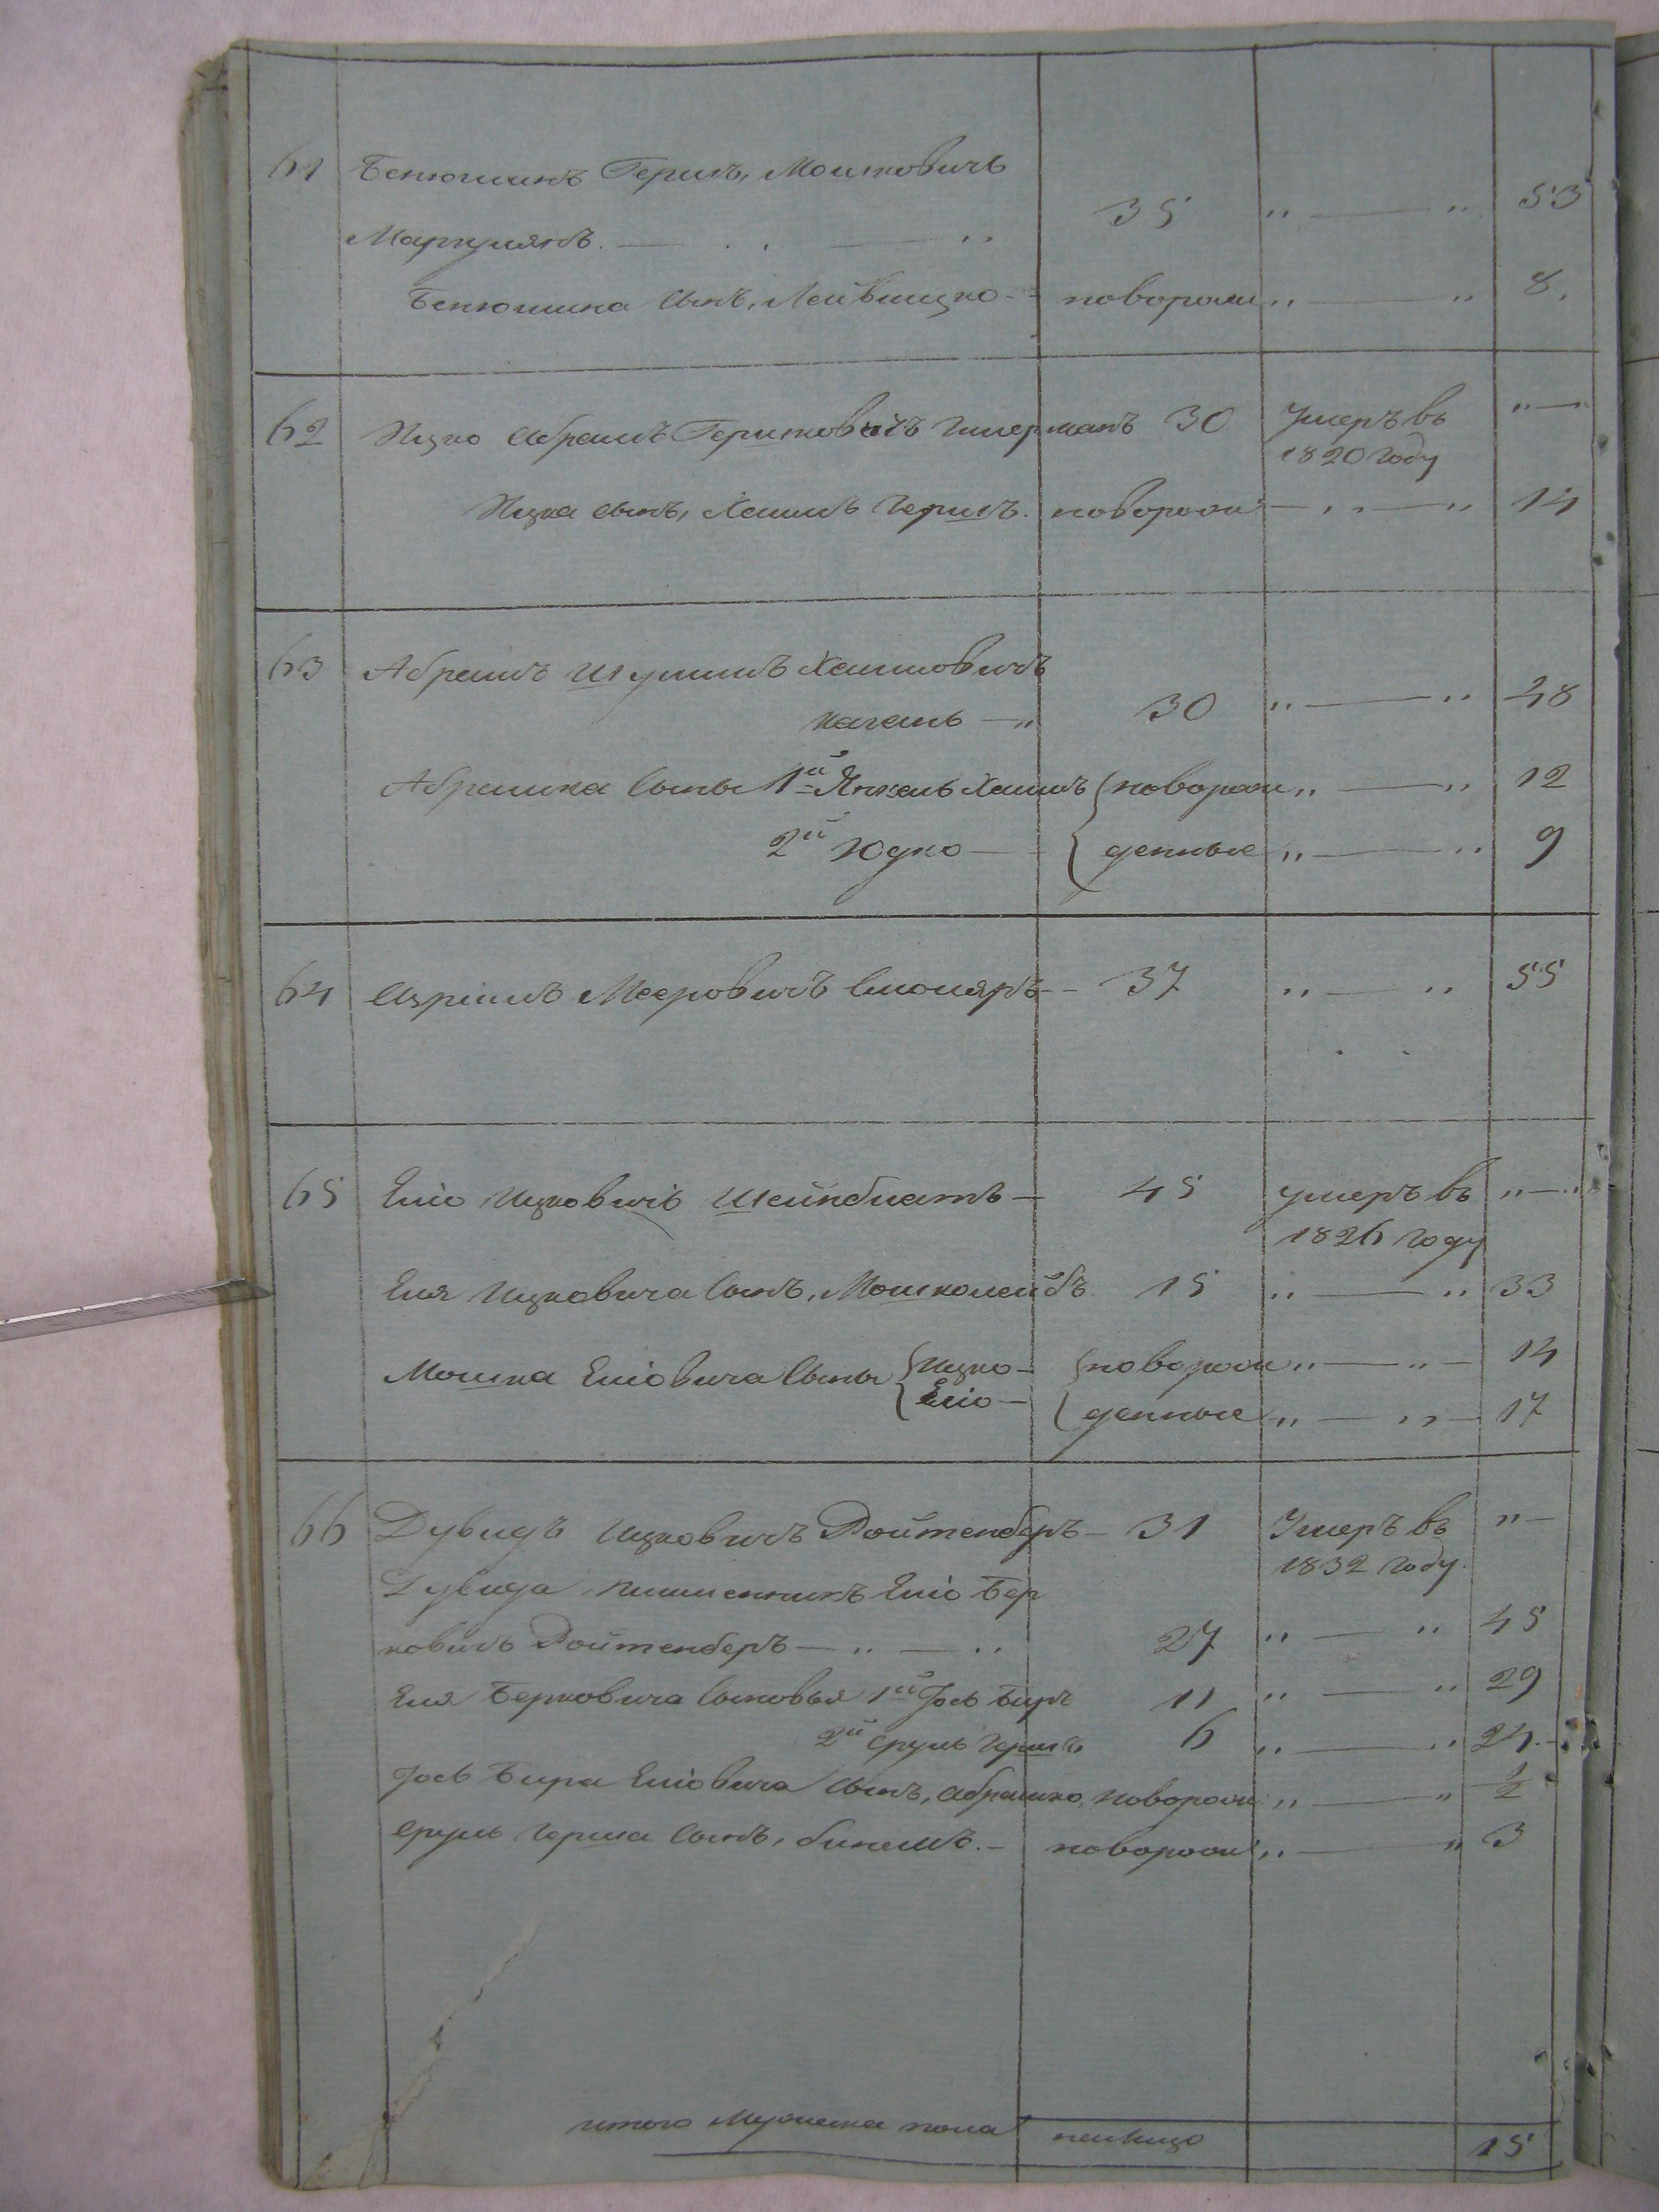 61 Бенюминъ Гершъ, Мошковичъ
Маргулянъ. — . . — „ 35 „ — „ 53
Бенюмина сынъ, Лейбицко - новорож „ — „ 8.
62 Ицко Абрамъ Гершковичъ Гитерманъ 30 Умеръ въ „—
1820 году
Ицка сынъ, Хаимъ Гершъ. новорож — „ — „ 14
63 Абрамъ Шулимъ Хаимовичъ
Каганъ — „ 30 „ — „ 48
Абрамка сыны 1й Янкель Хаимъ { новорож „ — „ 12
2й Юдко — { денные „ — „ 9
64 Изріиль Мееровичъ Столяръ - 37 „ — „ 55
65 Еліо Ицковичъ Шейнблатъ — 45 умеръ въ „ — „
1826 году
Еля Ицковича сынъ, Мошколейбъ. 15 „ — „ 33
Мошка Еліовича сыны { Ицко — { новорож „ — „ — 14
{ Еліо — { денные „ — „ — 17
66 Дувидъ Ицковичъ Ройтенберъ — 31 Умеръ въ „ —
1832 году.
Дувида племенникъ Еліо Бер
ковичъ Ройтенберъ — „ — „ 27 „ — „ 45
Еля Берковича сыновья 1й Іось Беръ 11 „ — „ 29
2й Сруль Гершъ 6 „ — „ 24.
Іось Бера Еліовича сынъ, Абрамко, новорож „ — „ ½
Сруль Герша сынъ, - новорож „ — „ 3
итого Мужеска пола налицо 15